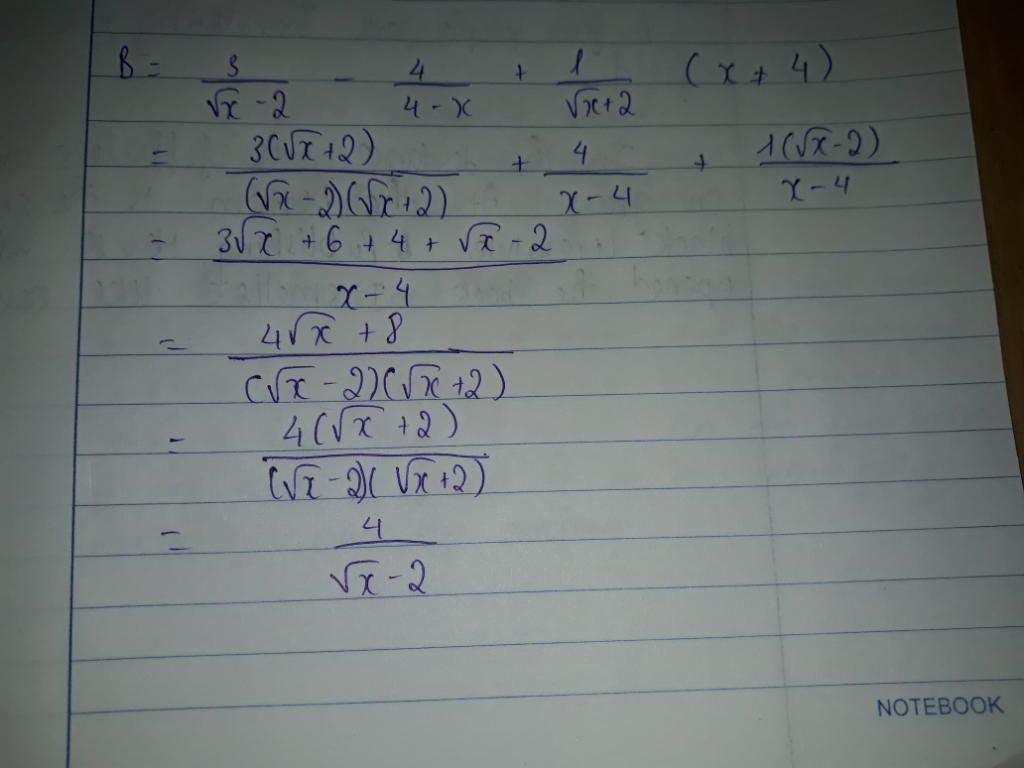 B = 3/(√x - 2) - 4/(4 - x) + 1/(√x+2) (x + 4)
= 3(√x+2)/((√x - 2)(√x+2)) + 4/(x - 4) + 1(√x-2)/(x - 4)
= (3√x + 6 + 4 + √x - 2)/(x - 4)
= (4√x + 8)/((√x - 2)(√x + 2))
= 4(√x + 2)/((√x - 2)(√x+2))
= 4/(√x - 2)
NOTEBOOK